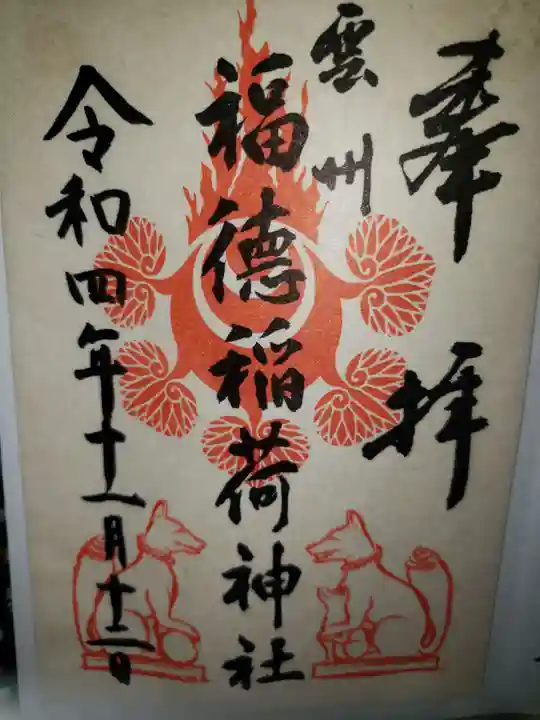 奉拝
雲州
福徳稲荷神社
令和四年十一月十二日